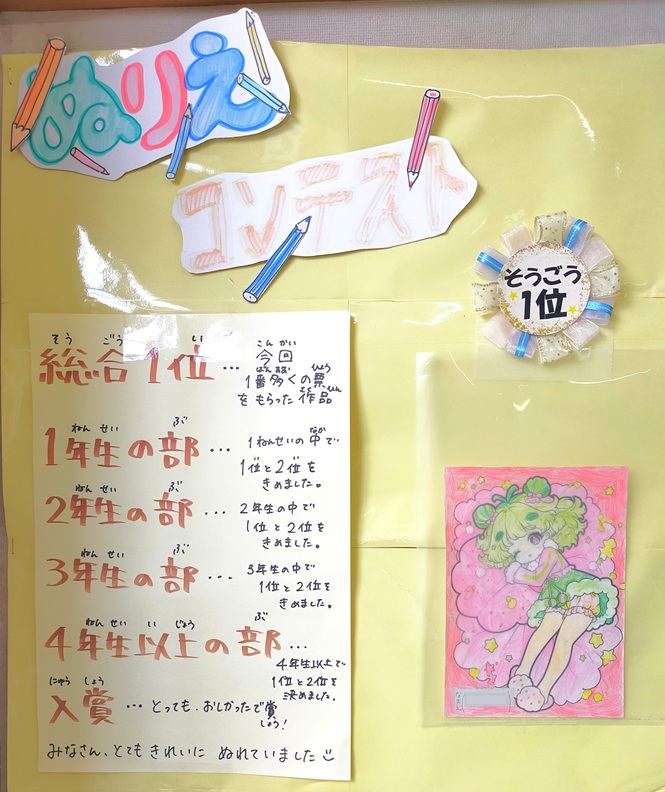 ぬりえ
コンテスト
そうごう
1位
総合1位…今回
1番多くの票
をもらった作品
1年生の部…1ねんせいの中で
1位と2位を
きめました。
2年生の部…2年生の中で
1位と2位を
きめました。
3年生の部…3年生の中で
1位と2位を
きめました。
4年生以上の部…
4年生以上で
1位と2位を
決めました。
入賞…とっても、おしかったで賞
しょう!
みなさん、とてもきれいに ぬれていました